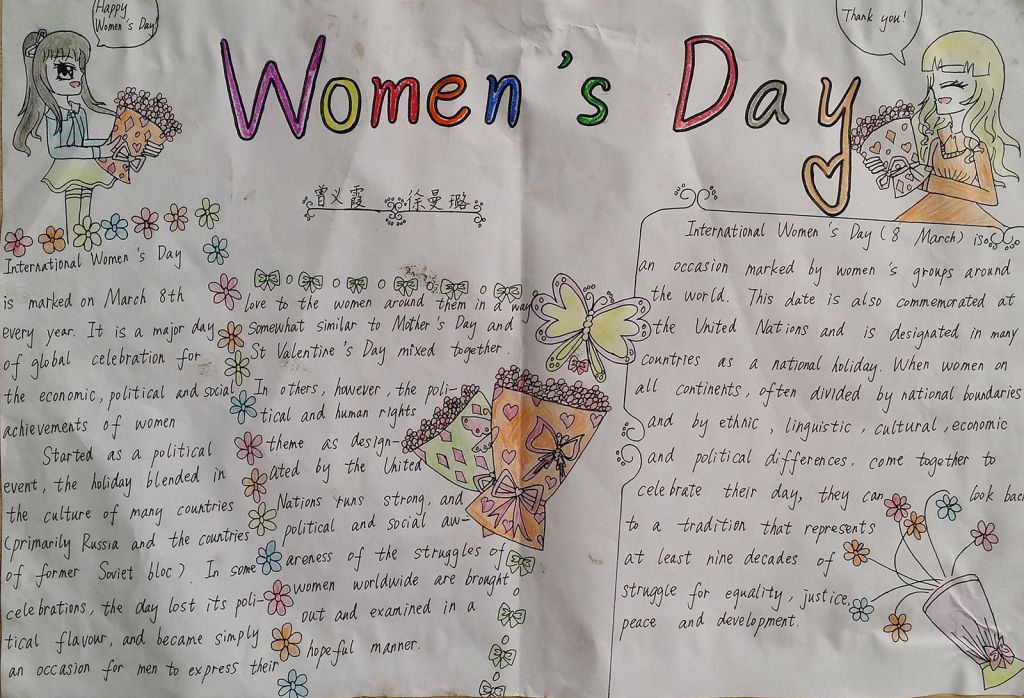 Happy
Women's Day!
Thank you!
Women's Day
曾义霞 徐曼璐
International Women's Day
is marked on March 8th
every year. It is a major day
of global celebration for
the economic, political and social
achievements of women
Started as a political
event, the holiday blended in
the culture of many countries
(primarily Russia and the countries
of former Soviet bloc). In some
celebrations, the day lost its poli-
tical flavour, and became simply
an occasion for men to express their
love to the women around them in a way
somewhat similar to Mother's Day and
St Valentine's Day mixed together.
In others, however, the poli-
tical and human rights
theme as design-
ated by the United
Nations runs strong, and
political and social aw-
areness of the struggles of
women worldwide are brought
out and examined in a
hopeful manner.
International Women's Day (8 March) is
an occasion marked by women's groups around
the world. This date is also commemorated at
the United Nations and is designated in many
countries as a national holiday. When women on
all continents, often divided by national boundaries
and by ethnic, linguistic, cultural, economic
and political differences, come together to
celebrate their day, they can look back
to a tradition that represents
at least nine decades of
struggle for equality, justice,
peace and development.